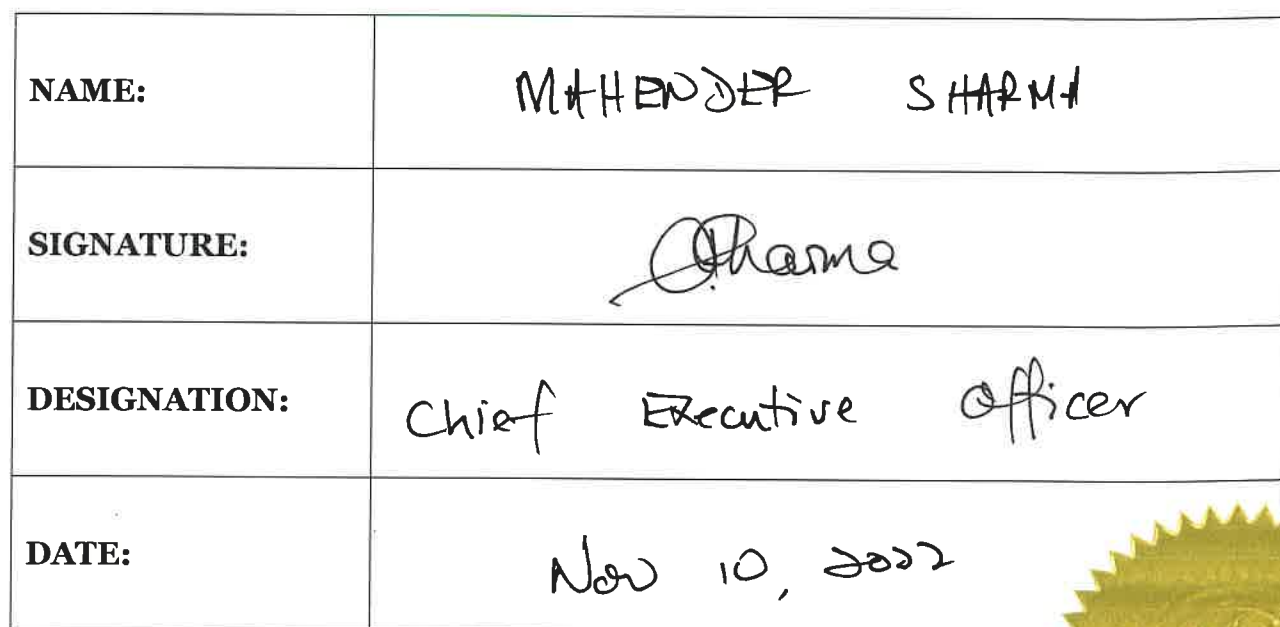 NAME: MAHENDER SHARMA
SIGNATURE: Sharma
DESIGNATION: Chief Executive Officer
DATE: Nov 10, 2022